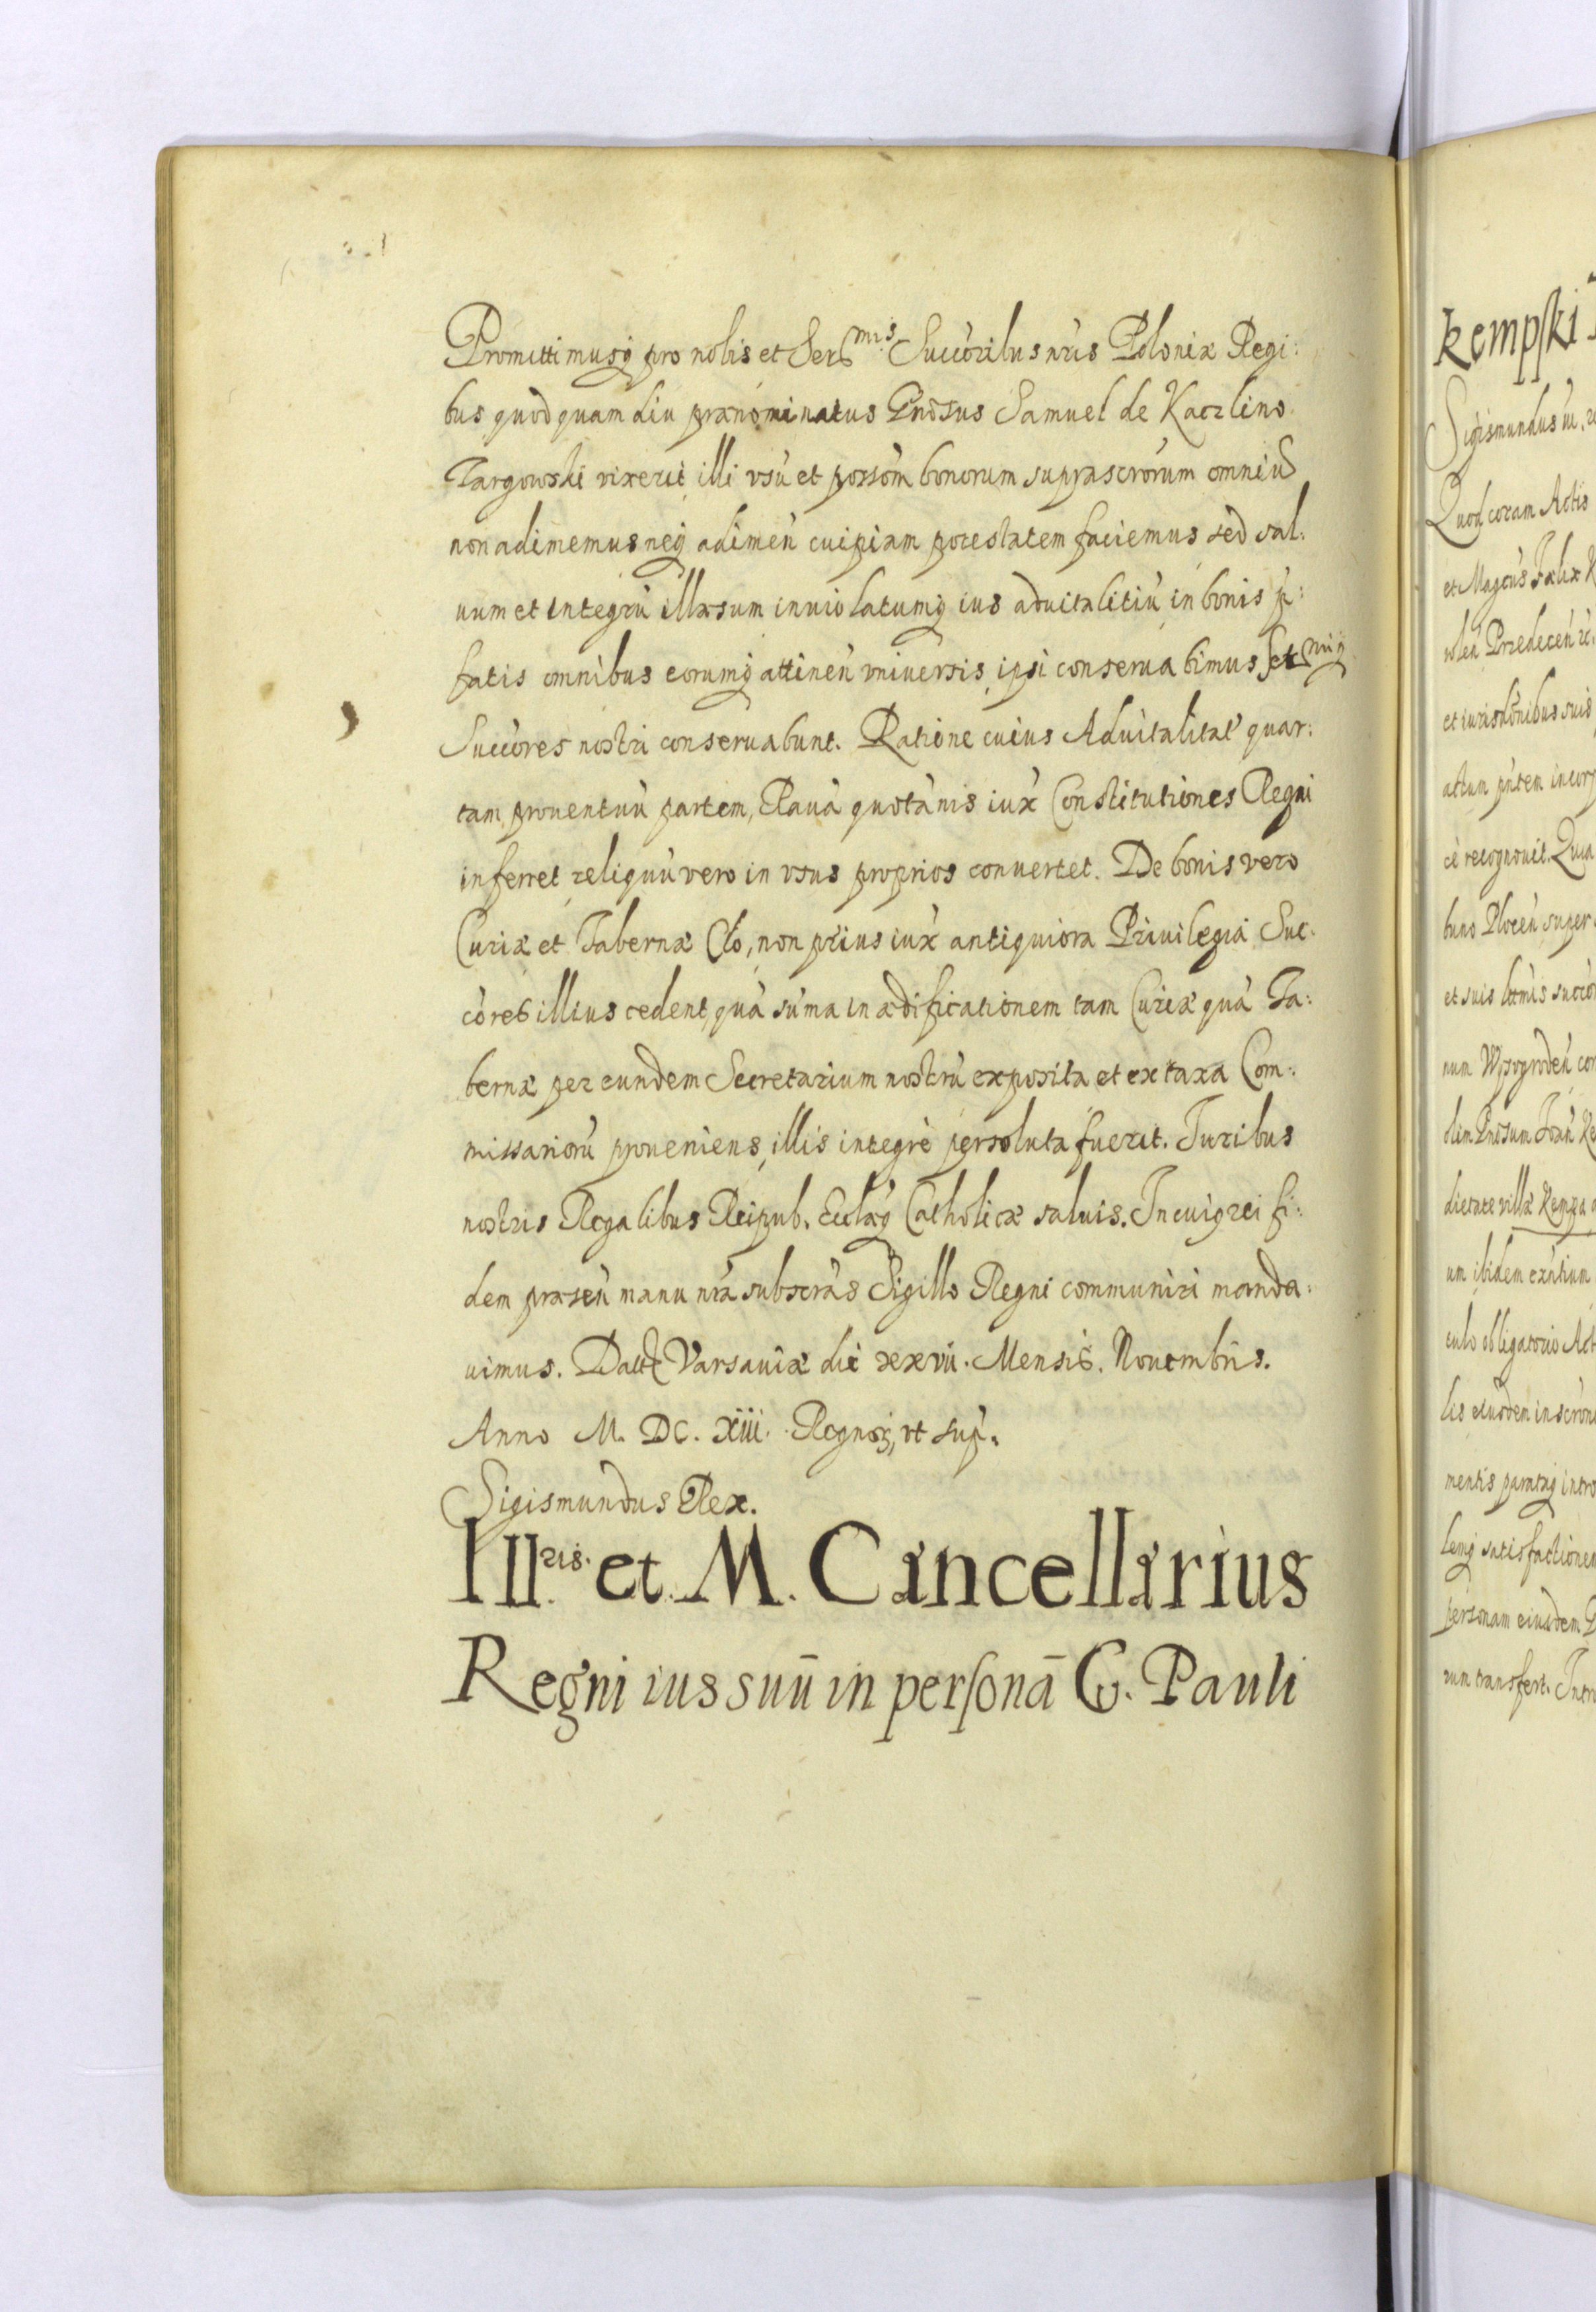 Promittimusq pro nobis et Ser^mis Succoribus nr̃is Poloniæ Regi:
bus quod quamdiu prænominatus Gnõsus Samuel de Kaczlino
Targowski vixerit, illi vsũ et possom̃ bonorum suprascrorum omniũ
non adimemus neq adimeñ cuipiam potestatem faciemus, sed sal:
uum et integrũ illæsum inuiolatumq ius aduitalitiũ in bonis p̃:
fatis omnibus eorumq attineñ vniuersis, ipsi conseruabimus, et
Succores nostri conseruabunt. Ratione cuius Aduitalitat̃ quar:
tam prouentuũ partem, Rauã quotãnis iux̃ Constitutiones Regni
inferret, reliquũ vero in vsus proprios conuertet. De bonis vero
Curiæ et Tabernæ Clo, non prius iux̃ antiquiora Priuilegia Suc:
còres illius cedent, quã sum̃a in ædificationem tam Curiæ quã Ta:
bernæ per eundem Secretarium nostrũ exposita et ex taxa Com:
missariorũ proueniens, illis integrè persoluta fuerit. Iuribus
nostris Regalibus Reipub. Ecclæq Catholicæ saluis. In cuiq rei fi:
dem præseñ manu nr̃a subscràs Sigillo Regni communiri manda:
uimus. Datt Varsauiæ die xxvii. Mensis. Nouembris.
Anno M. DC. XIII. Regnoʒ, vt sup.
Sigismundus Rex.
Ill^ris. et. M. Cancellarius
Regni ius suũ in personã G. Pauli
kempski
Sigismundus iii,
Quod coram Actis
et Magcũs Fælix
et iurisdõnibus suis
actum pñtem incorp
cè recognouit. Quia
buno Ploceñ super
et suis lttmis succo
num Wyssogrodeñ con
olim Gnosum Ioañ Ke
dictate villæ Kempa
um ibidem exñtium
culo obligatorio Act
lis eiusdem inscrõne
mentis paratisq intro
leniq satisfactionem
personam eiusdem
rum transfert. Intro